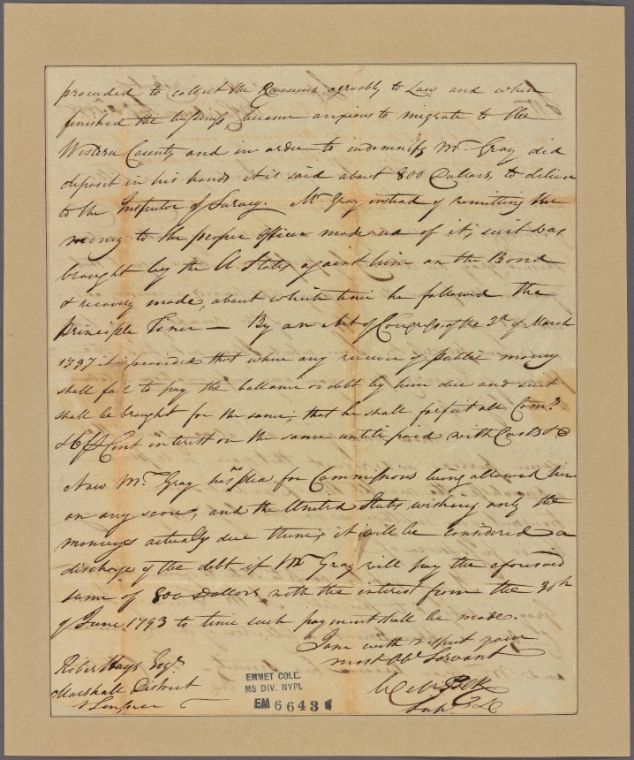 proceeded to collect the Revenue agreeably to Law and when
finished the business became anxious to migrate to the
Western County and in order to indemnify Mr. Gray did
deposit in his hands it is said about 800 Dollars, to deliver
to the Inspector of Survey. Mr Gray instead of remitting the
money to the proper Officer made use of it, suit was
brought by the U States against him on the Bond
& recovery made, about which time he followed the
Principle Tenor — By an Act of Congress of the 3d of March
1797 it is provided that where any receiver of public money
shall fail to pay the ballance or debt by him due and suit
shall be brought for the same, that he shall forfeit all Coms.
& 6 pCent interest on the same untile paid with Costs &c
Now Mr. Gray has no plea for Commissions being allowed him
on any score, and the United States wishing only the
moneys actually due them, it will be considered a
discharge of the debt if Mr Gray will pay the aforesaid
sum of 800 Dollars with the interest from the 30th
of June 1793 to time such payment shall be made.
I am with respect your
most Obt Servant
Robert Hays Esqr.
Marshall District
Tennessee
EMMET COLL.
MS DIV. NYPL
EM 6643